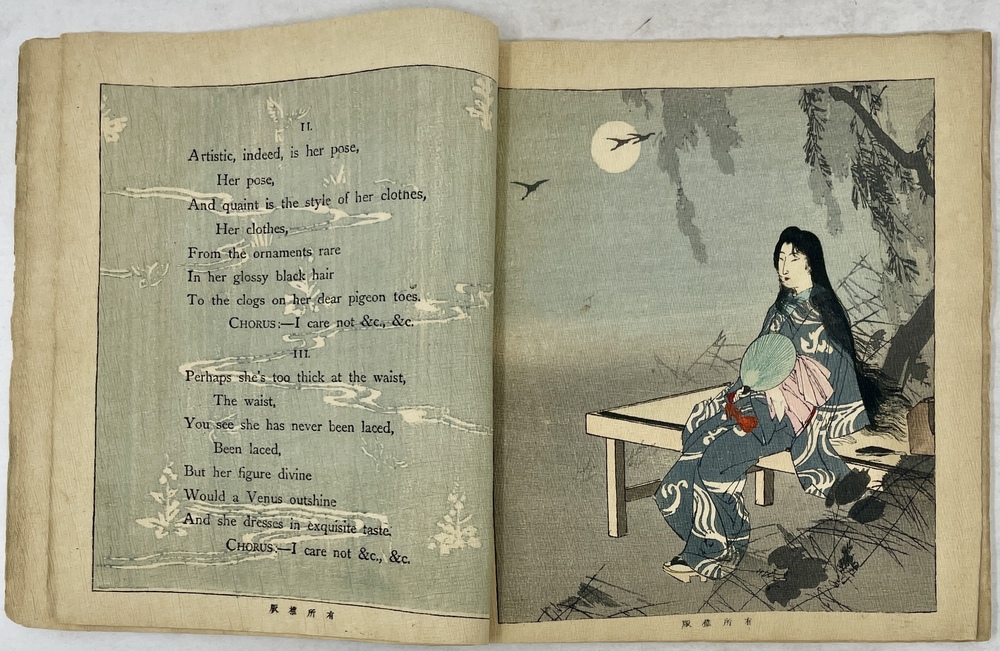 II.
Artistic, indeed, is her pose,
Her pose,
And quaint is the style of her clothes,
Her clothes,
From the ornaments rare
In her glossy black hair
To the clogs on her dear pigeon toes.
CHORUS:—I care not &c., &c.
III.
Perhaps she's too thick at the waist,
The waist,
You see she has never been laced,
Been laced,
But her figure divine
Would a Venus outshine
And she dresses in exquisite taste.
CHORUS:—I care not &c., &c.
版權所有
版權所有